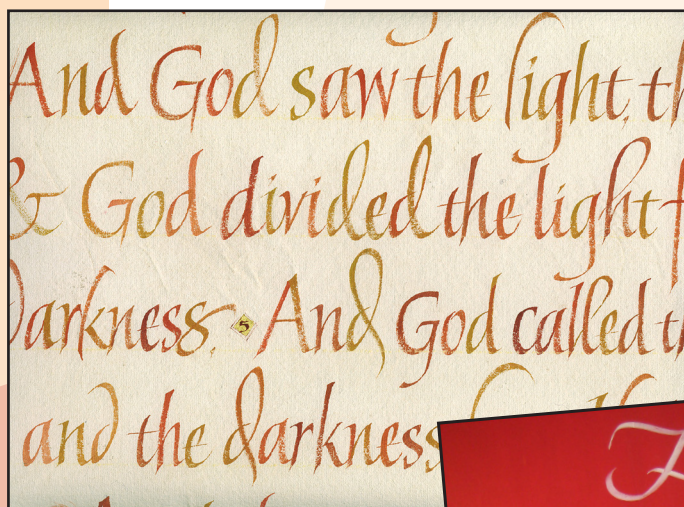 And God saw the light, th
& God divided the light f
Darkness. 5 And God called th
and the darkness